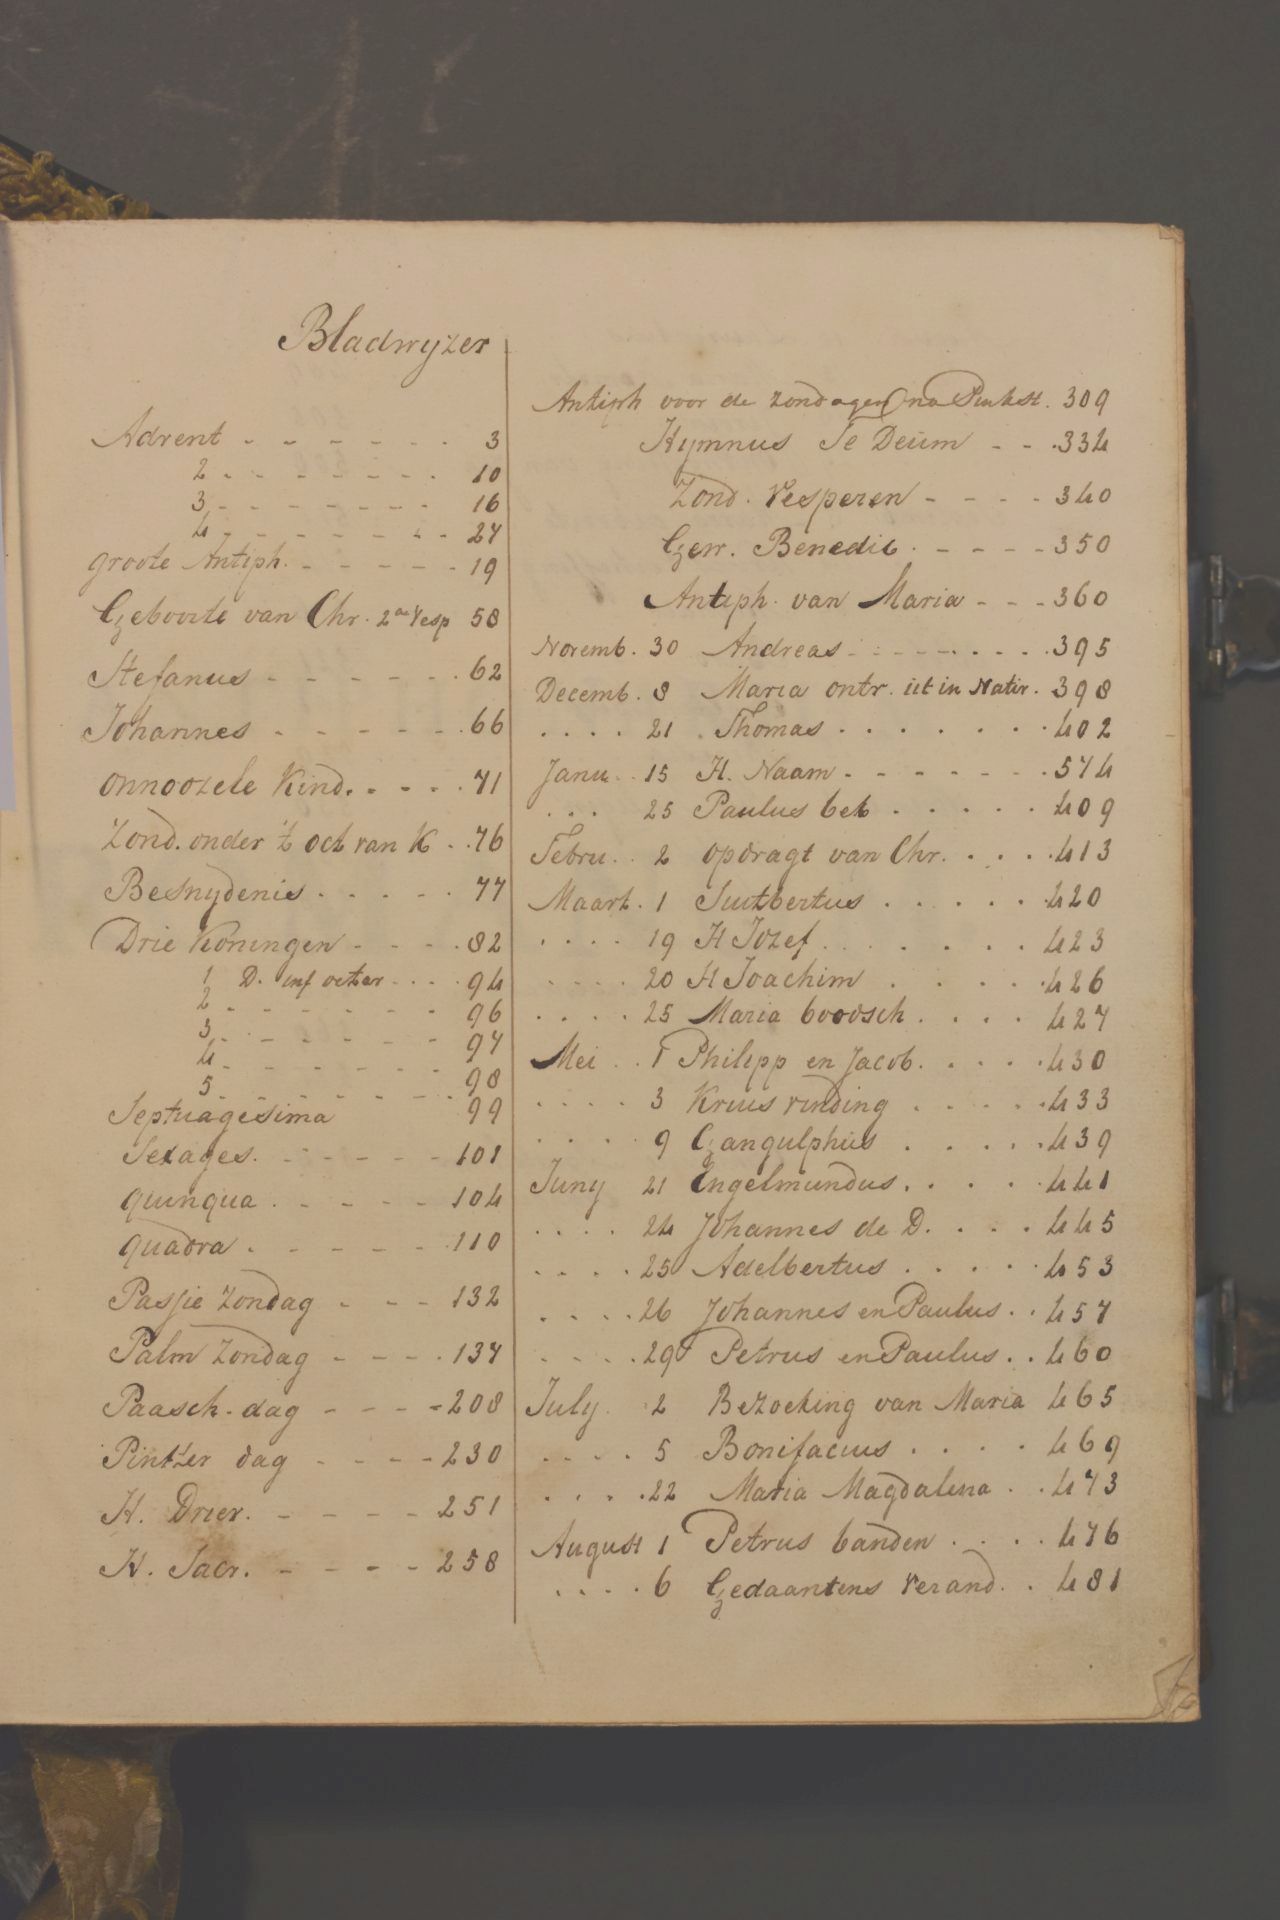 Bladwyzer
Advent - - - - - - - 3
2 - - - - - - - 10
3 - - - - - - - 16
4 - - - - - - - 27
groote Antiph. - - - - - - 19
Geboorte van Chr. 2de Vesp 58
Stefanus - - - - - - 62
Johannes - - - - - - 66
onnoozele Kind. - - - - 71
Zond. onder 't oct van K . . 76
Besnydenis . . . . . 77
Drie Koningen - - - - 82
1 D. inf octav . . . . 94
2 - - - - - - 96
3 - - - - - - 97
4 - - - - - - 98
5 - - - - - - 99
Septuagesima
Sexages. - - - - - 101
quinqua - - - - - 104
quadra . - - - - - 110
Passie Zondag - - - 132
Palm Zondag - - - - 137
Paasch-dag - - - - 208
Pinxter dag - - - - 230
H. Drier. - - - - - 251
H. Sacr. - - - - 258
Antiph voor de zondagen na Pinkst. 309
Hymnus Te Deum - - . 334
Zond. Vesperen - - - - 340
Gew. Benedic . - - - - 350
Antiph. van Maria - - - 360
Novemb. 30 Andreas - - - - . . . . 395
Decemb. 8 Maria ontv. ut in Nativ. 398
. . . . 21 Thomas . . . . . . . 402
Janu . . 15 H. Naam . - - - - - - 574
. . . 25 Paulus bek . . . . . 409
Febru . . 2 opdragt van Chr. . . . . 413
Maart . 1 Suitbertus . . . . . . 420
. . . . 19 H Jozef . . . . . . . 423
. . . . 20 H Joachim . . . . . 426
. . . . 25 Maria boodsch . . . . 427
Mei . . 1 Philipp en Jacob. . . . . 430
. . . . 3 Kruis vinding . . . . . 433
. . . . 9 Gangulphus . . . . . 439
Juny 21 Engelmundus. . . . . 441
. . . . 24 Johannes de D. . . . . 445
. . . . 25 Adelbertus . . . . . 453
. . . . 26 Johannes en Paulus. . 457
. . . . 29 Petrus en Paulus. . . 460
July . 2 Bezoeking van Maria 465
. . . . 5 Bonifacius . . . . 469
. . . . 22 Maria Magdalena . . 473
August 1 Petrus banden . . . . 476
. . . . 6 Gedaantens verand. . . 481